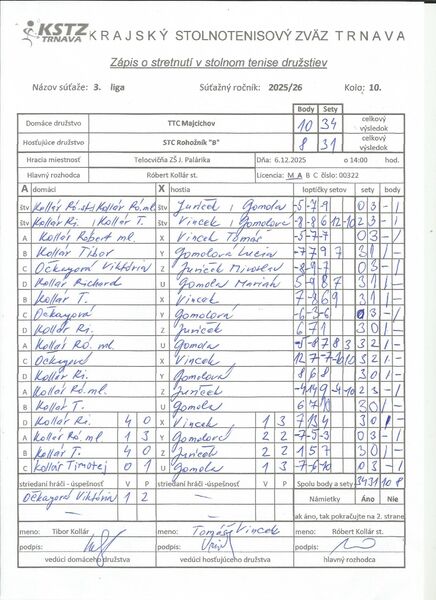 KSTZ
TRNAVA
KRAJSKÝ STOLNOTENISOVÝ ZVÄZ TRNAVA
Zápis o stretnutí v stolnom tenise družstiev
Názov súťaže: 3. liga Súťažný ročník: 2025/26 Kolo: 10.
Body Sety
Domáce družstvo TTC Majcichov 10 34 celkový výsledok
Hosťujúce družstvo STC Rohožník "B" 8 31 celkový výsledok
Hracia miestnosť Telocvičňa ZŠ J. Palárika Dňa: 6.12.2025 o 14:00 hod.
Hlavný rozhodca Róbert Kollár st. Licencia: M A B C číslo: 00322
A domáci X hostia loptičky setov sety body
štv Kollár Ró.st. Kollár Ró.ml. štv Juríček, Gomola -5 -7 -9 0 3 - 1
štv Kollár Ri., Kollár T. štv Vincek, Gomolová 2 3 - 1
A Kollár Róbert ml. X Vincek Tomáš -5 -7 -7 0 3 - 1
B Kollár Tibor Y Gomolová Lucia -7 7 9 7 3 1 1 -
C Očkayová Viktória Z Juríček Miroslav -8 -9 -7 0 3 - 1
D Kollár Richard U Gomola Marián 3 1 1 -
B Kollár T. X Vincek 3 1 1 -
C Očkayová Y Gomolová -6 -3 -6 0 3 - 1
D Kollár Ri. Z Juríček 6 7 1 3 0 1 -
A Kollár Ró. ml. U Gomola 3 2 1 -
C Očkayová X Vincek 3 2 1 -
D Kollár Ri. Y Gomolová 8 6 8 3 0 1 -
A Kollár Ró.ml. Z Juríček 2 3 - 1
B Kollár T. U Gomola 3 0 1 -
D Kollár Ri. 4 0 X Vincek 1 3 3 0 1 -
A Kollár Ró. ml. 1 3 Y Gomolová 2 2 -7 -5 -3 0 3 - 1
B Kollár T. 4 0 Z Juríček 2 2 1 5 7 3 0 1 -
C Kollár Timotej 0 1 U Gomola 1 3 0 3 - 1
striedaní hráči - úspešnosť V P striedaní hráči - úspešnosť V P Spolu body a sety 34 31 10 8
Očkayová Viktória 1 2 — Námietky Áno Nie
— — ak áno, tak pokračujte na 2. strane
meno: Tibor Kollár meno: Tomáš Vincek meno: Róbert Kollár st.
podpis: podpis: podpis:
vedúci domáceho družstva vedúci hosťujúceho družstva hlavný rozhodca